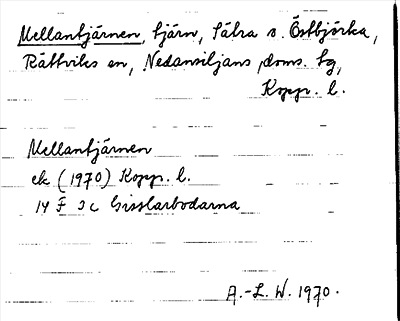 Mellantjärnen, tjärn, Sätra s. Östbjörka,
Rättviks sn, Nedansiljans doms. tg,
Kopp. l.
Mellantjärnen
ek (1970) Kopp. l.
14 F 3c Gisslarbodarna
A.-L. W. 1970.